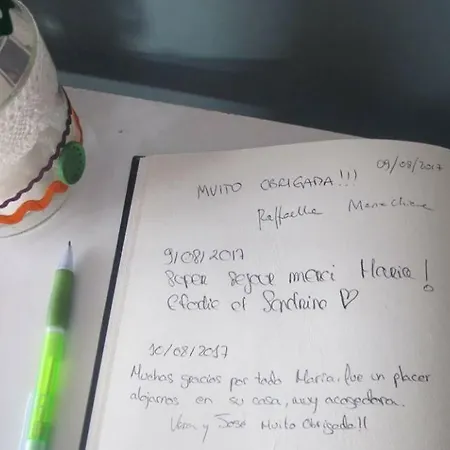 09/08/2017
MUITO OBRIGADA!!!
Raffaella
9/08/2017
Super sejour merci Maria!
Elodie et Sandrine ♡
10/08/2017
Muchas gracias por todo María. Fue un placer
alojarnos en su casa, muy acogedora.
y Jose Muito Obrigada!!